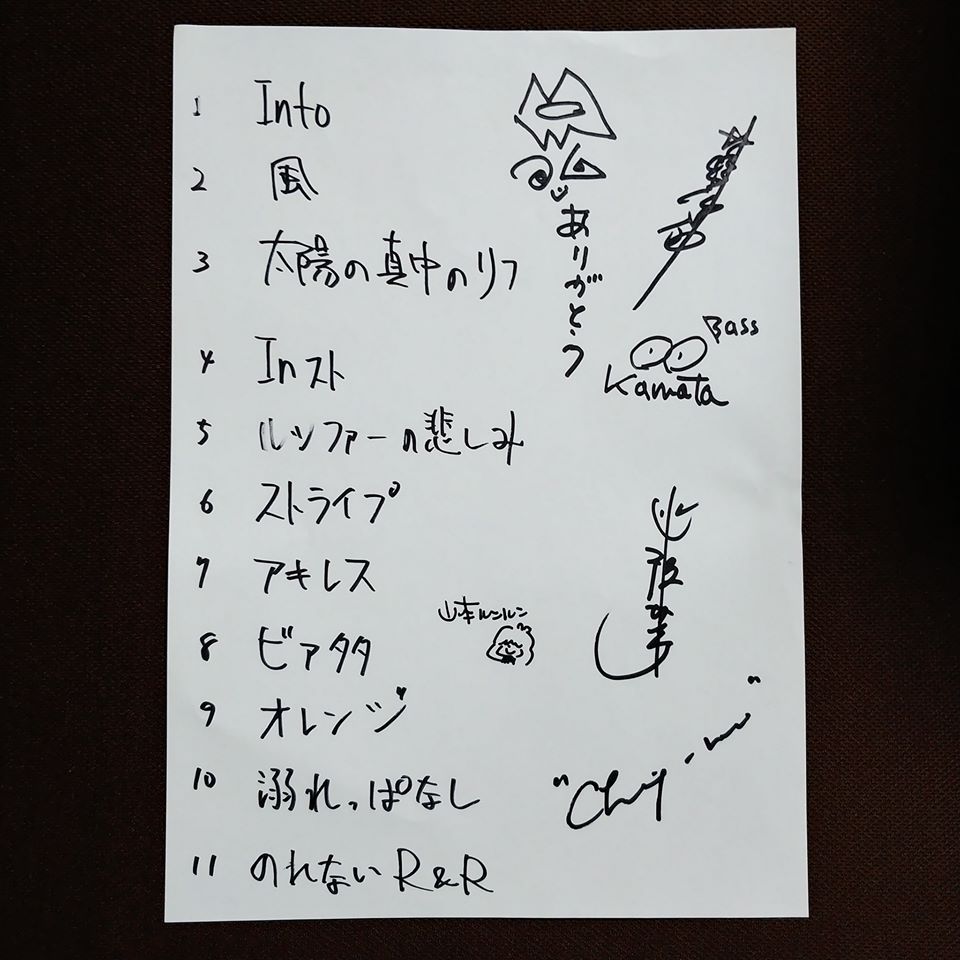 1 Into
2 風
3 太陽の真中のリフ
4 Inスト
5 ルシファーの悲しみ
6 ストライプ
7 アキレス
8 ビアタタ
9 オレンジ
10 溺れっぱなし
11 のれないR&R
ありがとう
Bass
Kamata
山本ルンルン